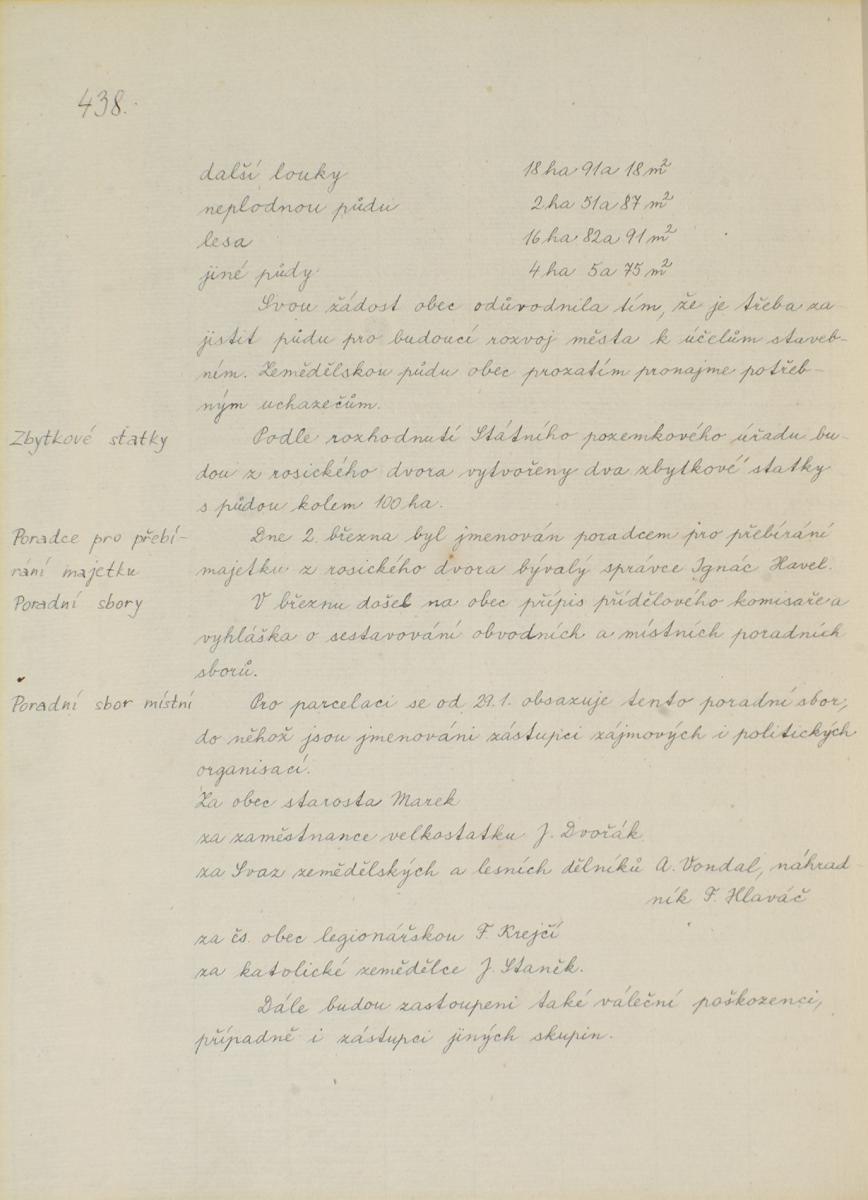 438.
další louky 18 ha 91 a 18 m²
neplodnou půdu 2 ha 51 a 87 m²
lesa 16 ha 82 a 91 m²
jiné půdy 4 ha 5 a 75 m²
Svou žádost obec odůvodnila tím, že je třeba za-
jistit půdu pro budoucí rozvoj města k účelům staveb-
ním. Zemědělskou půdu obec prozatím pronajme potřeb-
ným uchazečům.
Zbytkové statky
Podle rozhodnutí Státního pozemkového úřadu bu-
dou z rosického dvora vytvořeny dva zbytkové statky
s půdou kolem 100 ha.
Poradce pro přebí-
rání majetku
Dne 2. března byl jmenován poradcem pro přebírání
majetku z rosického dvora bývalý správce Ignác Havel.
Poradní sbory
V březnu došel na obec přípis přídělového komisaře a
vyhláška o sestavování obvodních a místních poradních
sborů.
Poradní sbor místní
Pro parcelaci se od 29.1. obsazuje tento poradní sbor,
do něhož jsou jmenováni zástupci zájmových i politických
organisací.
Za obec starosta Marek
za zaměstnance velkostatku J. Dvořák
za Svaz zemědělských a lesních dělníků A. Vondal, náhrad-
ník F. Hlaváč
za čs. obec legionářskou F. Krejčí
za katolické zemědělce J. Staněk.
Dále budou zastoupeni také váleční poškozenci,
případně i zástupci jiných skupin.